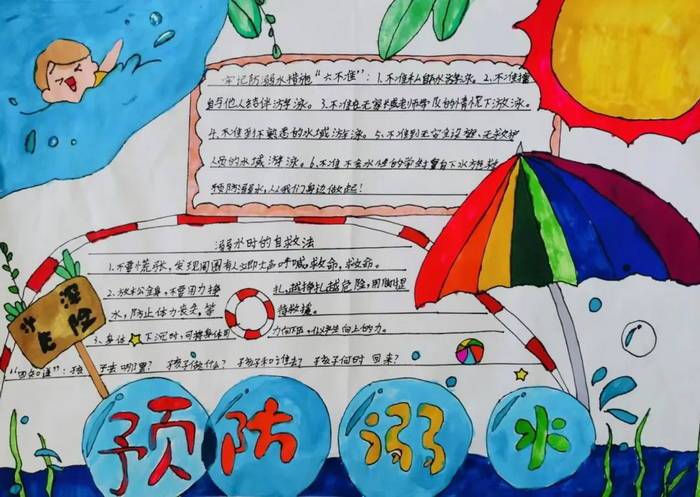 牢记防溺水措施"六不准"：1.不准私自下水游泳。2.不准擅
自与他人结伴游泳。3.不准在无家长或老师带队的情况下游泳。
4.不准到不熟悉的水域游泳。5.不准到无安全设施、无救护
人员的水域游泳。6.不准不会水性的学生擅自下水施救
预防溺水，从我们身边做起！
溺水时的自救法
1.不要慌张，发现周围有人立即大声呼喊救命，救命。
2.放松全身，不要用力挣扎，越挣扎越危险，用脚踢
水，防止体力丧失，等待救援。
3.身体下沉时，可将身体 力向下压，
"四知道"：孩子去哪里？孩子做什么？孩子和谁去？孩子何时回来？
水深
危险
预防溺水